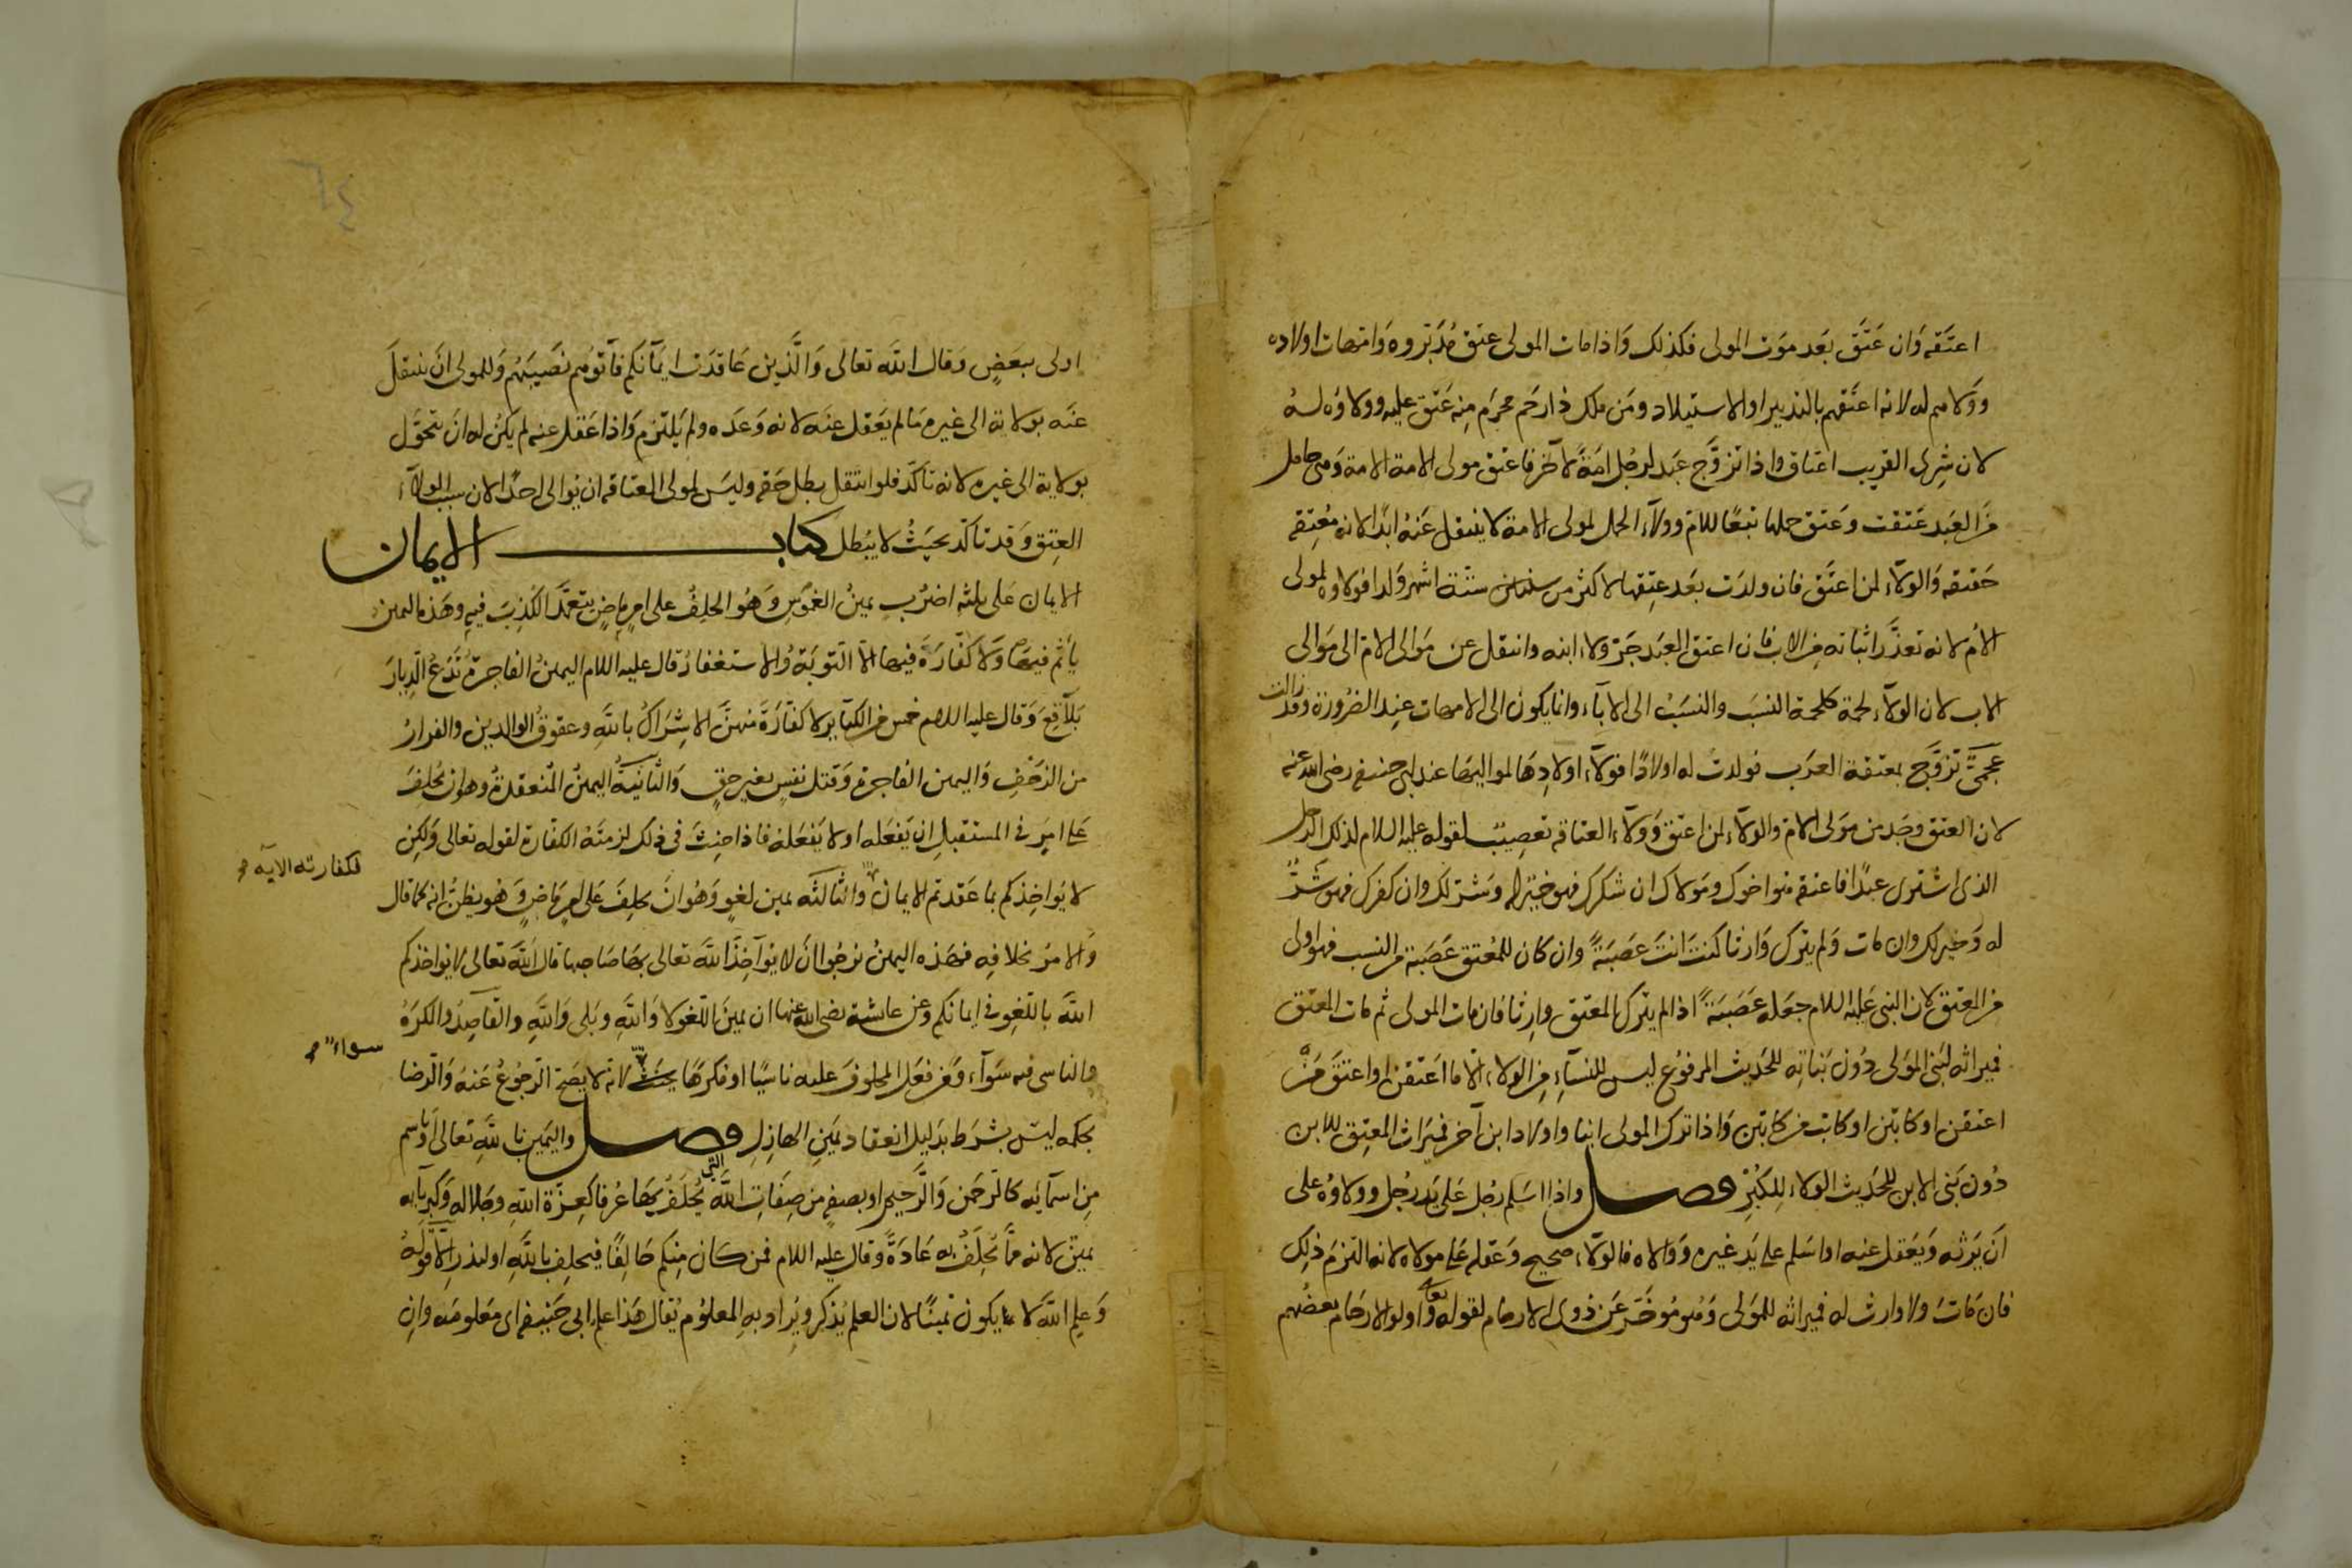 اعتقه وان عتق بعد موت المولى فكذلك واذا مات المولى عتق مدبروه وامهات اولاده
وولاهم له لانه اعتقهم بالتدبير او الاستيلاد ومن ملك ذا رحم محرم منه عتق عليه وولاؤه له
لان شرى القريب اعتاق واذا تزوج عبد لرجل امة لآخر فاعتق مولى الامة الامة وهى حامل
من العبد عتقت وعتق حملها تبعا للام وولاء الحمل لمولى الامة لا ينتقل عنه ابدا لانه معتقه
حقيقه والولاء لمن اعتق فان ولدت بعد عتقها لاكثر من ستة اشهر ولدا فولاوه لمولى
الام لانه تعذر اثباته من الاب فان اعتق العبد جر ولاء ابنه وانتقل عن موالى الام الى موالى
الاب لان الولاء لحمة كلحمة النسب والنسب الى الاباء وانما يكون الى الامهات عند الضرورة وقد زالت
عجمى تزوج بمعتقة العرب فولدت له اولادا فولاء اولادها لمواليها عند ابى حنيفه رضى الله عنه
لان العتق وجد من مولى الام والولاء لمن اعتق وولاء العتاقه تعصيب لقوله عليه السلام لذلك الرجل
الذى اشترى عبدا فاعتقه هو اخوك ومولاك ان شكرك فهو خير له وشر لك وان كفرك فهو شر
له وخير لك وان مات ولم يترك وارثا كنت انت عصبته وان كان للمعتق عصبة من النسب فهو اولى
من المعتق لان النبى عليه السلام جعله عصبة اذا لم يترك المعتق وارثا فان مات المولى ثم مات المعتق
فميراثه لبنى المولى دون بناته للحديث المرفوع ليس للنساء من الولاء الا ما اعتقن او اعتق من
اعتقن او كاتبن او كاتب من كاتبن واذا ترك المولى ابنا واولاد ابن آخر فميراث المعتق للابن
دون بنى الابن للحديث الولاء للكبر فصل واذا اسلم رجل على يد رجل وولاوه على
ان يرثه ويعقل عنه او اسلم على يد غيره ووالاه فالولاء صحيح وعقله على مولاه لانه التزم ذلك
فان مات ولا وارث له فميراثه للمولى وهو موخر عن ذوى الارحام لقوله تعالى واولوا الارحام بعضهم
اولى ببعض وقال الله تعالى والذين عاقدت ايمانكم فآتوهم نصيبهم وللمولى ان ينتقل
عنه بولايه الى غيره ما لم يعقل عنه لانه وعده ولم يلتزم واذا عقل عنه لم يكن له ان يتحول
بولاية الى غيره لانه تاكد فلو انتقل بطل حقه وليس لمولى العتاقه ان يوالى احدا لان سبب الولاء
العتق وقد تاكد بحيث لا يبطل كتاب الايمان
الايمان على ثلثه اضرب يمين الغموس وهو الحلف على امر ماض يتعمد الكذب فيه وهذه اليمين
يأثم فيها ولا كفارة فيها الا التوبة والاستغفار قال عليه السلام اليمين الفاجرة تدع الديار
بلاقع وقال عليه السلام خمس من الكباير لا كفارة منهن الاشراك بالله وعقوق الوالدين والفرار
من الزحف واليمين الفاجرة وقتل نفس بغير حق والثانية اليمين المنعقدة وهو ان يحلف
على امر فى المستقبل ان يفعله او لا يفعله فاذا حنث فى ذلك لزمته الكفارة لقوله تعالى ولكن
فكفارته الايه صح
لا يواخذكم بما عقدتم الايمان والثالثه يمين لغو وهو ان يحلف على امر ماض وهو يظن انه كما قال
والامر بخلافه فهذه اليمين نرجوا ان لا يوآخذ الله تعالى بها صاحبها قال الله تعالى لا يواخذكم
الله باللغو فى ايمانكم وعن عائشة رضى الله عنها ان يمين اللغو لا والله وبلى والله والقاصد والمكره
سواء صح
والناسى فيه سوآء ومن فعل المحلوف عليه ناسيا او مكرها يحنث لانه لا يصح الرجوع عنه والرضا
بحكمه ليس بشرط بدليل انعقاد يمين الهازل فصل واليمين بالله تعالى او باسم
من اسمائه كالرحمن والرحيم او بصفه من صفات الله التى يحلف بها عرفا كعزة الله وجلاله وكبريائه
يمين لانه مما يحلف به عادة وقال عليه السلام فمن كان منكم حالفا فيحلف بالله او ليذر الا قوله
وعلم الله لا يكون يمينا لان العلم يذكر ويراد به المعلوم يقال هذا علم ابى حنيفه اى معلومه وان